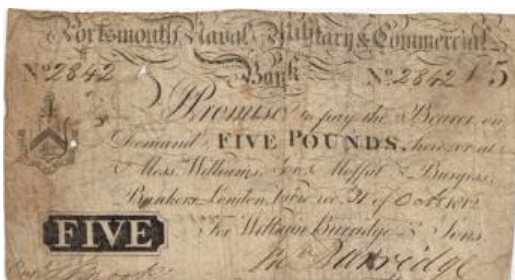 Portsmouth Naval Military & Commercial
Bank
No 2842 No 2842 £5
I Promise to pay the Bearer on
Demand FIVE POUNDS, here or at
Mess. Williams, Son, Moffat & Burgess,
Bankers London, 31 of Oct 1812
For William Burridge & Sons
FIVE
Burridge